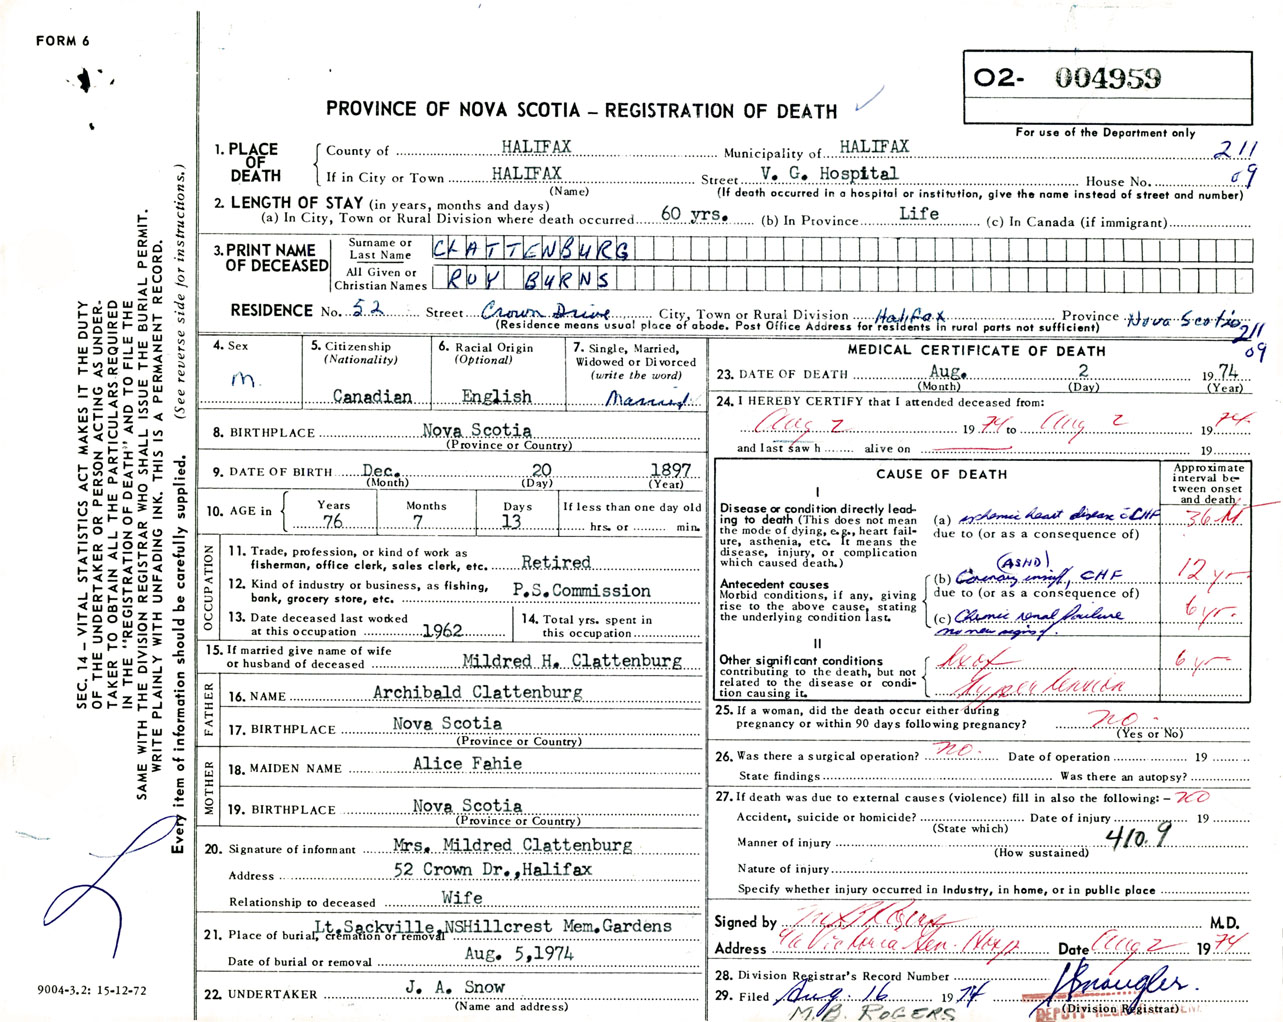 FORM 6
O2- 004959
For use of the Department only
PROVINCE OF NOVA SCOTIA – REGISTRATION OF DEATH
SEC. 14 – VITAL STATISTICS ACT MAKES IT THE DUTY
OF THE UNDERTAKER OR PERSON ACTING AS UNDER-
TAKER TO OBTAIN ALL THE PARTICULARS REQUIRED
IN THE "REGISTRATION OF DEATH" AND TO FILE THE
SAME WITH THE DIVISION REGISTRAR WHO SHALL ISSUE THE BURIAL PERMIT.
WRITE PLAINLY WITH UNFADING INK. THIS IS A PERMANENT RECORD.
Every item of information should be carefully supplied. (See reverse side for instructions.)
1. PLACE OF DEATH
County of HALIFAX Municipality of HALIFAX 211
If in City or Town HALIFAX Street V. G. Hospital House No. 09
(Name) (If death occurred in a hospital or institution, give the name instead of street and number)
2. LENGTH OF STAY (in years, months and days)
(a) In City, Town or Rural Division where death occurred 60 yrs. (b) In Province Life (c) In Canada (if immigrant)
3. PRINT NAME OF DECEASED
Surname or Last Name CLATTENBURG
All Given or Christian Names ROY BURNS
RESIDENCE No. 52 Street Crown Drive City, Town or Rural Division Halifax Province Nova Scotia
(Residence means usual place of abode. Post Office Address for residents in rural parts not sufficient) 211
09
4. Sex M.
5. Citizenship (Nationality) Canadian
6. Racial Origin (Optional) English
7. Single, Married, Widowed or Divorced (write the word) Married
8. BIRTHPLACE Nova Scotia
(Province or Country)
9. DATE OF BIRTH Dec. 20 1897
(Month) (Day) (Year)
10. AGE in Years 76 Months 7 Days 13 If less than one day old hrs. or min.
OCCUPATION
11. Trade, profession, or kind of work as
fisherman, office clerk, sales clerk, etc. Retired
12. Kind of industry or business, as fishing,
bank, grocery store, etc. P.S.Commission
13. Date deceased last worked
at this occupation 1962
14. Total yrs. spent in
this occupation
15. If married give name of wife
or husband of deceased Mildred H. Clattenburg
FATHER
16. NAME Archibald Clattenburg
17. BIRTHPLACE Nova Scotia
(Province or Country)
MOTHER
18. MAIDEN NAME Alice Fahie
19. BIRTHPLACE Nova Scotia
(Province or Country)
20. Signature of informant Mrs. Mildred Clattenburg
Address 52 Crown Dr.,Halifax
Relationship to deceased Wife
21. Place of burial, cremation or removal Lt.Sackville,NSHillcrest Mem.Gardens
Date of burial or removal Aug. 5,1974
22. UNDERTAKER J. A. Snow
(Name and address)
MEDICAL CERTIFICATE OF DEATH
23. DATE OF DEATH Aug. 2 1974
(Month) (Day) (Year)
24. I HEREBY CERTIFY that I attended deceased from:
Aug 2 1974 to Aug 2 1974
and last saw h alive on 19
CAUSE OF DEATH
Approximate interval between onset and death
I
Disease or condition directly lead-
ing to death (This does not mean
the mode of dying, e.g., heart fail-
ure, asthenia, etc. It means the
disease, injury, or complication
which caused death.)
(a) ischemic heart disease c̄ CHF 36 H
due to (or as a consequence of)
(ASHD)
Antecedent causes
Morbid conditions, if any, giving
rise to the above cause, stating
the underlying condition last.
(b) Coronary insuff, CHF 12 yr.
due to (or as a consequence of)
(c) Chronic renal failure 6 yr.
II
Other significant conditions
contributing to the death, but not
related to the disease or condi-
tion causing it.
Hypertension 6 yr
25. If a woman, did the death occur either during
pregnancy or within 90 days following pregnancy? no.
(Yes or No)
26. Was there a surgical operation? no. Date of operation 19
State findings Was there an autopsy?
27. If death was due to external causes (violence) fill in also the following: – no
Accident, suicide or homicide? Date of injury 19
(State which)
Manner of injury 410.9
(How sustained)
Nature of injury
Specify whether injury occurred in industry, in home, or in public place
Signed by M B Rogers M.D.
Address Victoria Gen. Hosp. Date Aug 2 1974
28. Division Registrar's Record Number
29. Filed Aug. 16 1974
(Division Registrar)
DEPUTY
M. B. ROGERS
9004-3.2: 15-12-72